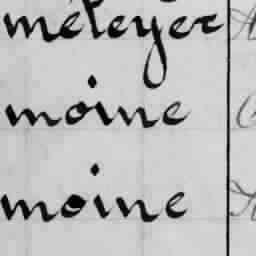 méteyer
moine
moine